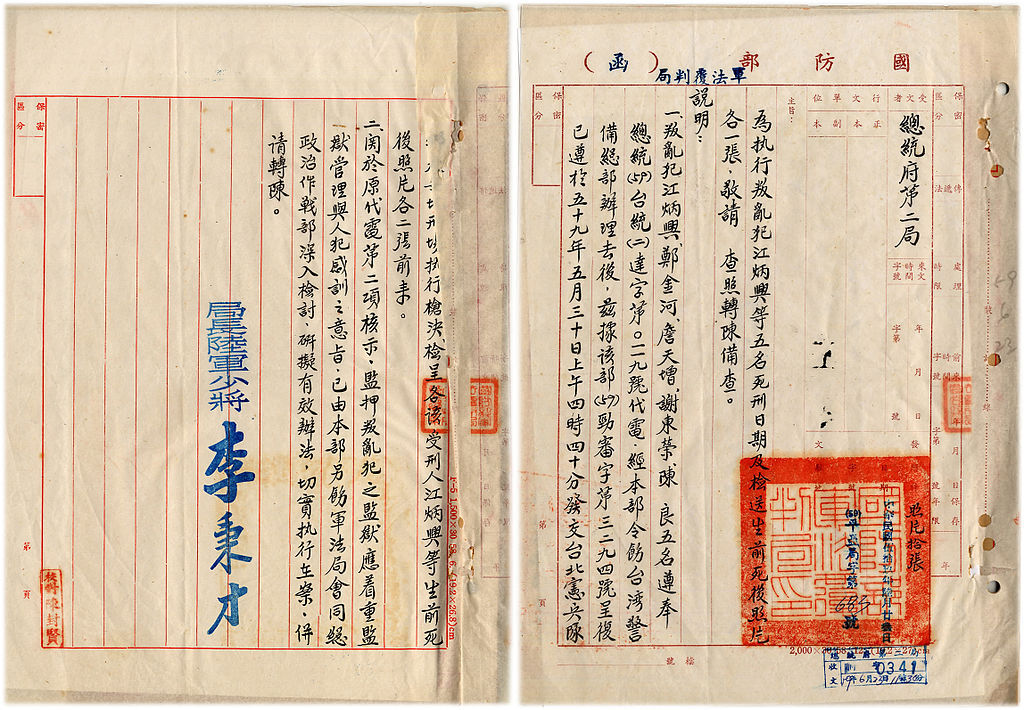 國防部（函）
軍法覆判局
保密區分
受文者
總統府第二局
行文單位
正本
副本
照片拾張
主旨：
為执行叛亂犯江炳興等五名死刑日期及檢送生前死後照片
各一張，敬請　查照轉陳備查。
説明：
一、叛亂犯江炳興、鄭金河、詹天增、謝東榮、陳　良五名遵奉
總統(59)台統(二)達字第〇二一九號代電，經本部令飭台湾警
備総部辦理去後，茲據該部(59)勁審字第三二九四號呈復
已遵於五十九年五月三十日上午四時四十分發交台北憲兵隊
保密區分
第　頁
檔號
0341
保密區分
执行槍決，檢呈各該受刑人江炳興等生前死
後照片各二張前來。
二、関於原代電第二項核示，監押叛亂犯之監獄應着重監
獄管理與人犯感訓之意旨，已由本部另飭軍法局會同総
政治作戰部深入檢討，研擬有效辦法，切實执行在案，併
請轉陳。
局長陸軍少將　李秉才
第　頁